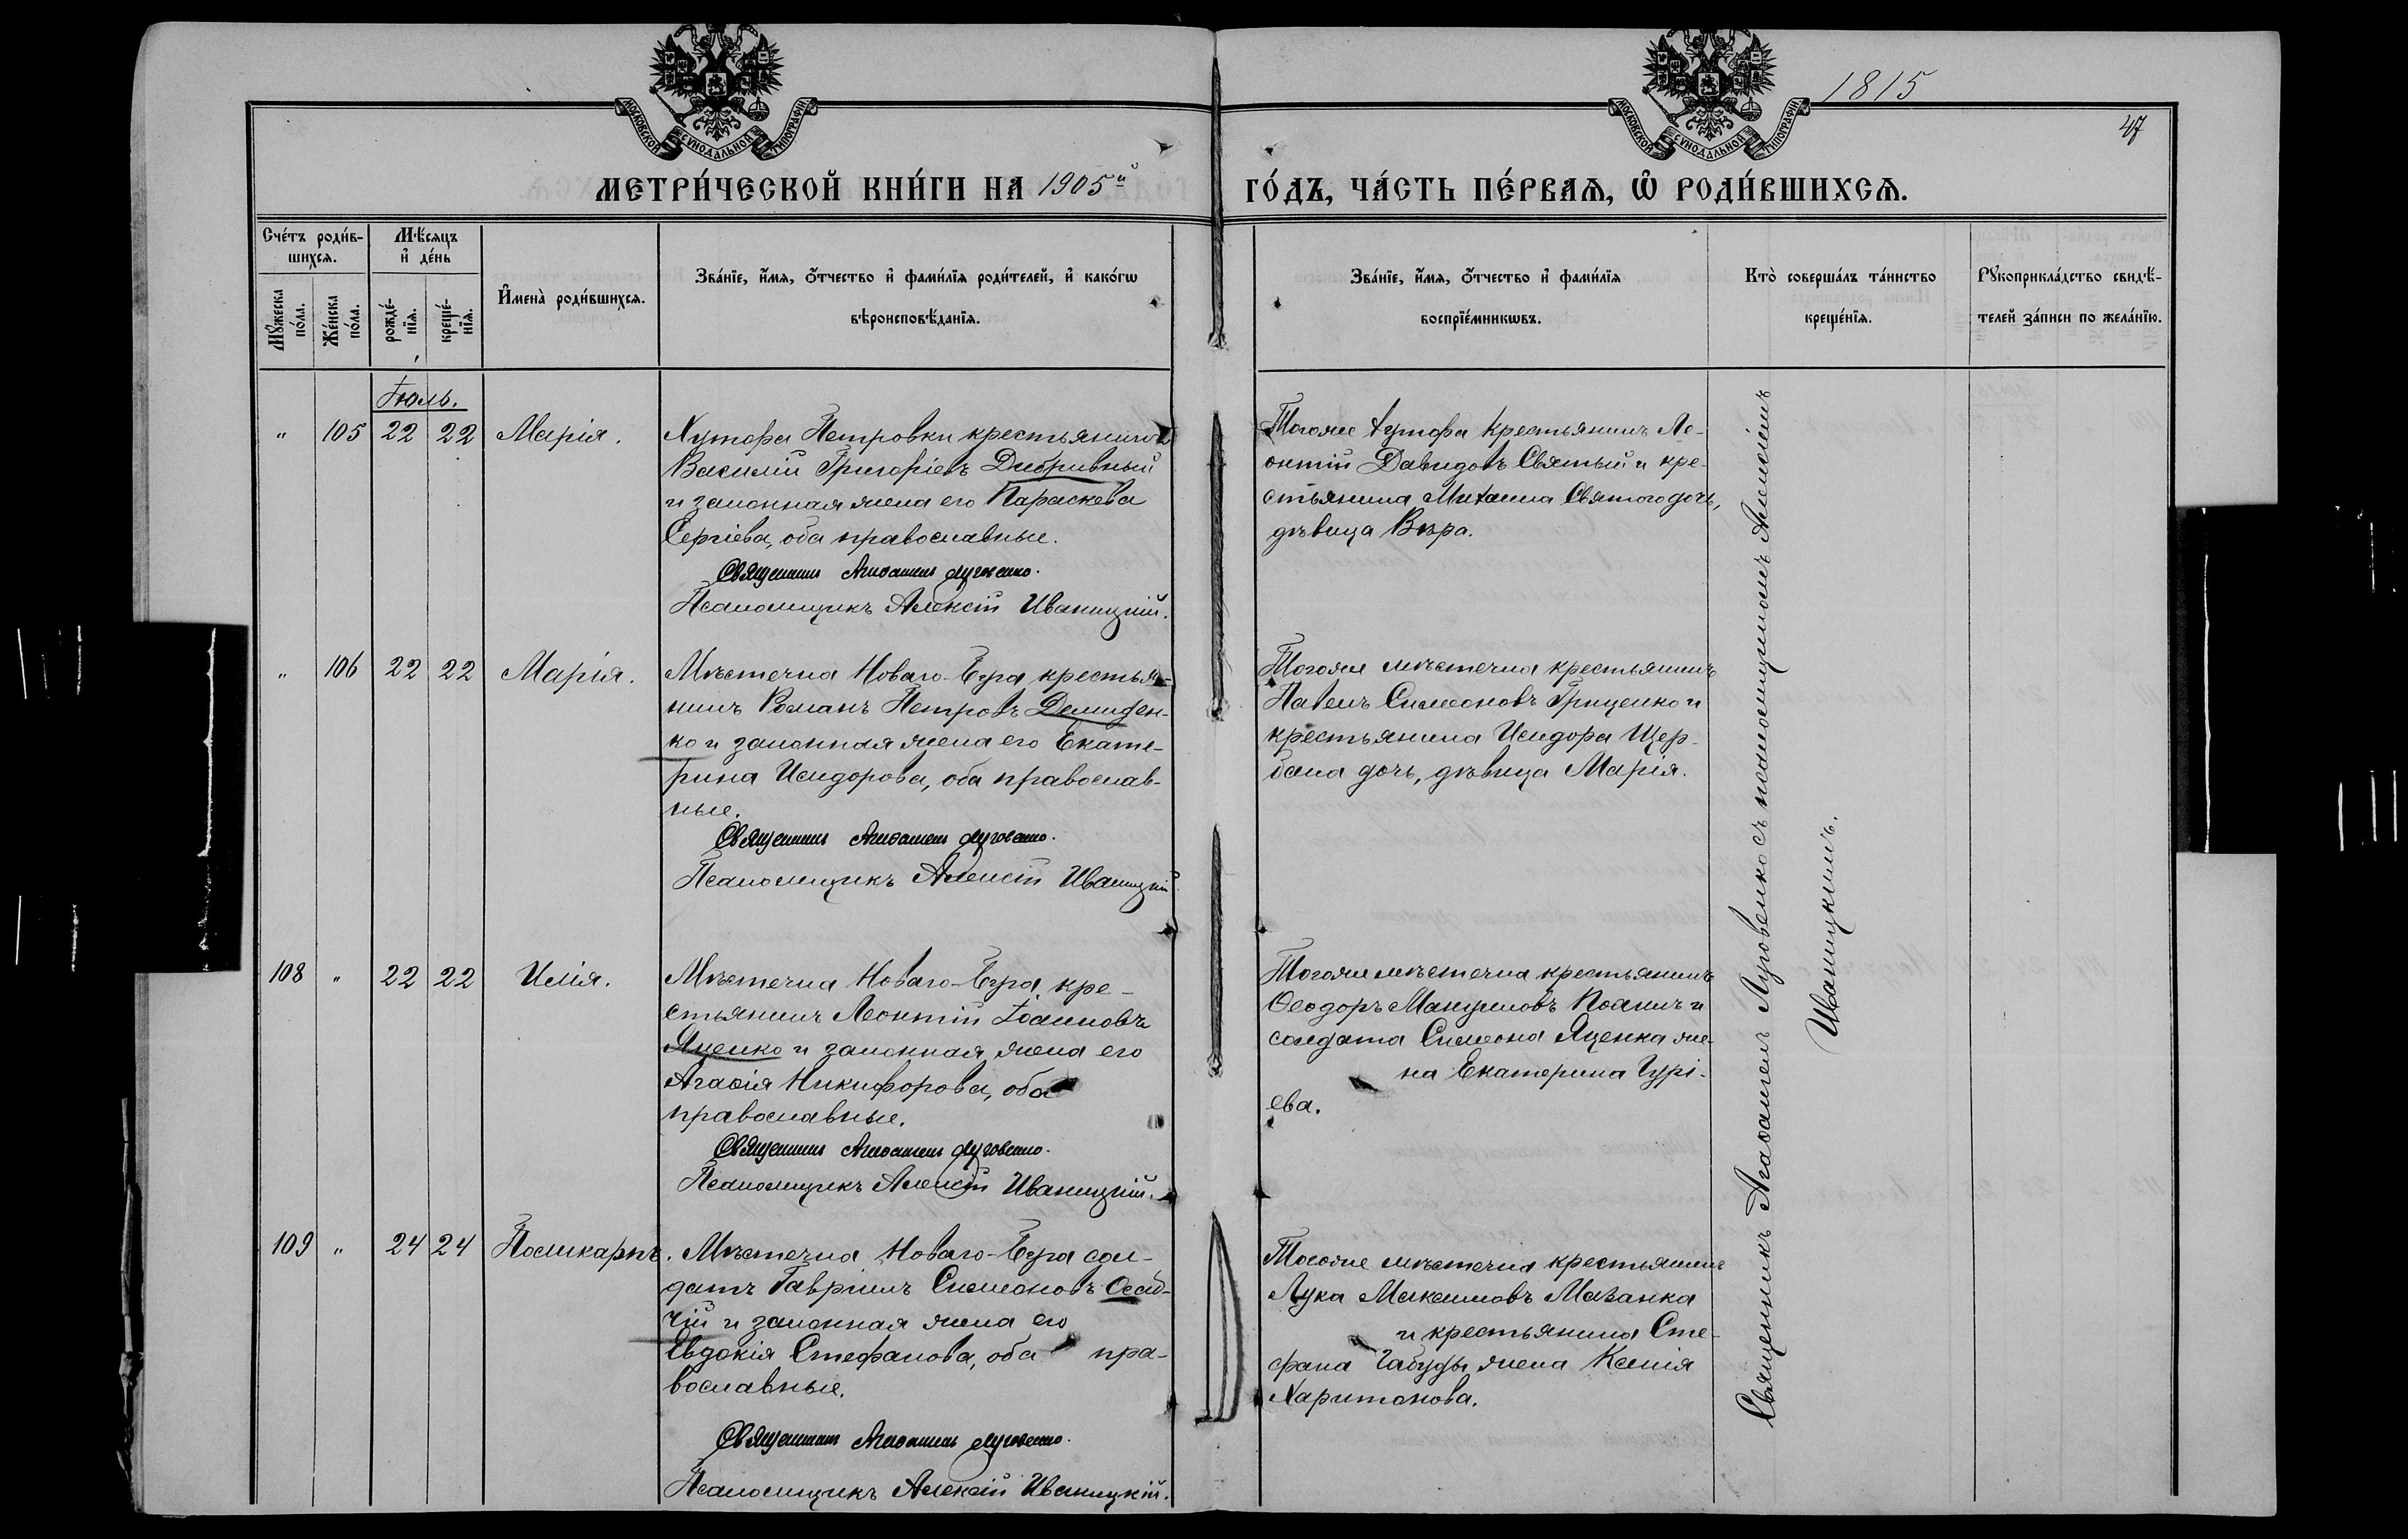 МОСКОВСКОЙ СУНОДАЛЬНОЙ ТИПОГРАФІИ
МОСКОВСКОЙ СУНОДАЛЬНОЙ ТИПОГРАФІИ
1815
47
МЕТРИ́ЧЕСКОЙ КНИ́ГИ НА 1905й
ГО́ДЪ, ЧА́СТЬ ПЕ́РВАѦ, Ѡ҆ РОДИ́ВШИХСѦ.
Сче́тъ роди́в-
шихсѧ.
Мꙋ́жеска по́ла.
Же́нска по́ла.
Мѣ́сѧцъ
и҆ де́нь
рожде́-
нїѧ.
креще́-
нїѧ.
И҆мена̀ роди́вшихсѧ.
Зва́нїе, и҆́мѧ, ѻ҆́тчество и҆ фами́лїѧ роди́телей, и҆ како́гѡ
вѣроисповѣ́данїѧ.
Зва́нїе, и҆́мѧ, ѻ҆́тчество и҆ фами́лїѧ
воспрїе́мникѡвъ.
Кто̀ соверша́лъ та́инство
креще́нїѧ.
Рꙋкоприкла́дство свидѣ́-
телей за́писи по жела́нїю.
Іюль.
" 105 22 22 Марія.
Хутора Петровки крестьянинъ
Василій Григоріевъ Дибривный
и законная жена его Параскева
Сергіева, оба православные.
Священникъ Агафангелъ Луговенко.
Псаломщикъ Алексій Иваницкій.
Тогоже хутора крестьянинъ Ле-
онтій Давидовъ Святый и кре-
стьянина Михаила Святого дочь,
дѣвица Вѣра.
" 106 22 22 Марія.
Мѣстечка Новаго-Буга крестья-
нинъ Романъ Петровъ Демиден-
ко и законная жена его Екате-
рина Исидорова, оба православ-
ные.
Священникъ Агафангелъ Луговенко.
Псаломщикъ Алексій Иваницкій
Тогоже мѣстечка крестьянинъ
Павелъ Симеоновъ Гриценко и
крестьянина Исидора Щер-
бана дочь, дѣвица Марія.
108 " 22 22 Илія.
Мѣстечка Новаго-Буга кре-
стьянинъ Леонтій Іоанновъ
Яценко и законная жена его
Агафія Никифорова, оба
православные.
Священникъ Агафангелъ Луговенко.
Псаломщикъ Алексій Иваницкій.
Тогоже мѣстечка крестьянинъ
Ѳеодоръ Мануиловъ и
солдата Симеона Яценка же-
на Екатерина Гурі-
ева.
109 " 24 24 Поликарпъ.
Мѣстечка Новаго-Буга сол-
датъ Гавріилъ Симеоновъ Осад-
чій и законная жена его
Евдокія Стефанова, оба пра-
вославные.
Священникъ Агафангелъ Луговенко.
Псаломщикъ Алексій Иваницкій.
Тогоже мѣстечка крестьянинъ
Лука Максимовъ Мазанка
и крестьянина Сте-
фана жена Ксенія
Харитонова.
Священникъ Агафангелъ Луговенко съ псаломщикомъ Алексіемъ
Иваницкимъ.